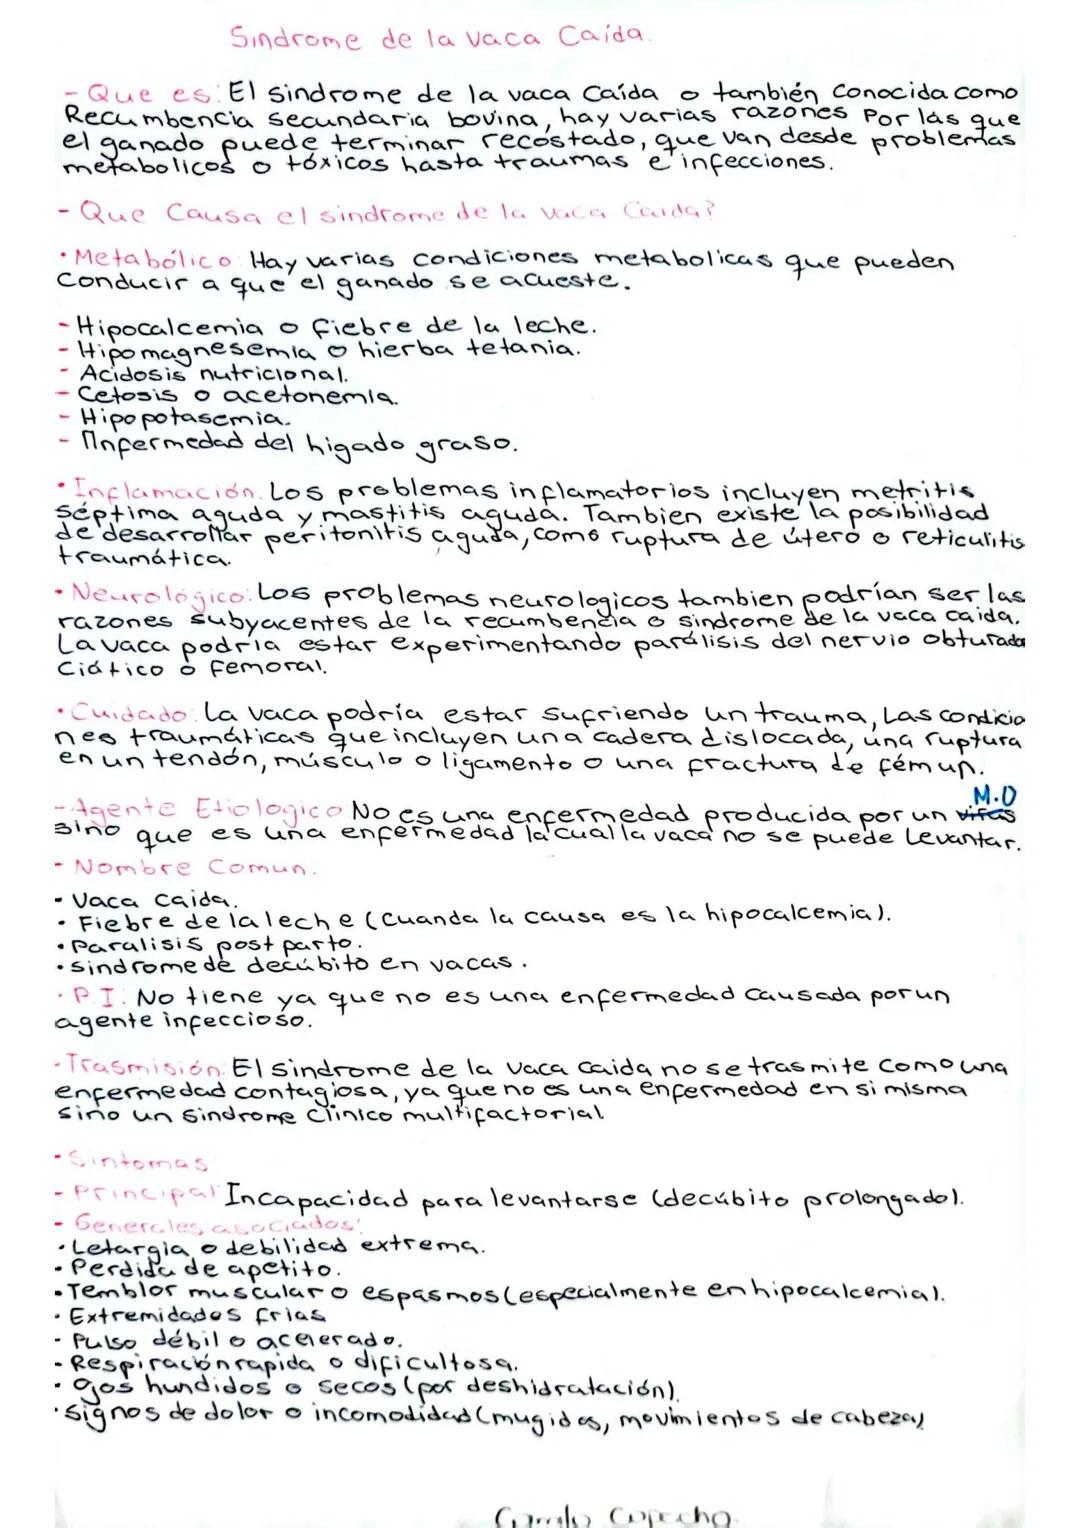 Sindrome de la vaca Caída.
- Que es: El sindrome de la vaca Caída o también conocida como
Recumbencia secundaria bovina, hay varias razones Por las que
el ganado puede terminar recostado, que van desde problemas
metabolicos o tóxicos hasta traumas e infecciones.
- Que Causa el sindrome de la vaca Caida?
• Metabólico: Hay varias condiciones metabolicas que pueden
Conducir a que el ganado se acueste.
- Hipocalcemia o fiebre de la leche.
- Hipomagnesemia o hierba tetania.
- Acidosis nutricional.
- Cetosis o acetonemia.
- Hipopotasemia.
- Enfermedad del higado graso.
• Inflamación. Los problemas inflamatorios incluyen metritis
séptima aguda y mastitis aguda. Tambien existe la posibilidad
de desarrollar peritonitis aguda, como ruptura de útero o reticulitis
traumática.
• Neurológico: Los problemas neurologicos tambien podrían ser las
razones subyacentes de la recumbencia o sindrome de la vaca caida.
La vaca podria estar experimentando parálisis del nervio obturado
Ciático o femoral.
• Cuidado: La vaca podría estar sufriendo un trauma, Las condicio
nes traumáticas que incluyen una cadera dislocada, una ruptura
en un tendón, músculo o ligamento o una fractura de fémur.
M.O
- Agente Etiologico No es una enfermedad producida por un virus
sino que es una enfermedad la cual la vaca no se puede Levantar.
- Nombre Comun.
• Vaca caida.
• Fiebre de la leche (Cuanda la causa es la hipocalcemia).
• Paralisis post parto.
• sindrome de decúbito en vacas.
• P.I: No tiene ya que no es una enfermedad Causada por un
agente infeccioso.
- Trasmisión: El sindrome de la vaca caida no se trasmite Como una
enfermedad contagiosa, ya que no es una enfermedad en si misma
sino un sindrome Clinico multifactorial
• Sintomas
- Principal Incapacidad para levantarse (decúbito prolongado).
- Generales asociados:
• Letargia o debilidad extrema.
• Perdida de apetito.
• Temblor muscular o espasmos (especialmente en hipocalcemia).
• Extremidades frias
- Pulso débil o acelerado.
- Respiración rapida o dificultosa.
• Ojos hundidos o secos (por deshidratación)
• Signos de dolor o incomodidad (mugidos, movimientos de cabeza)